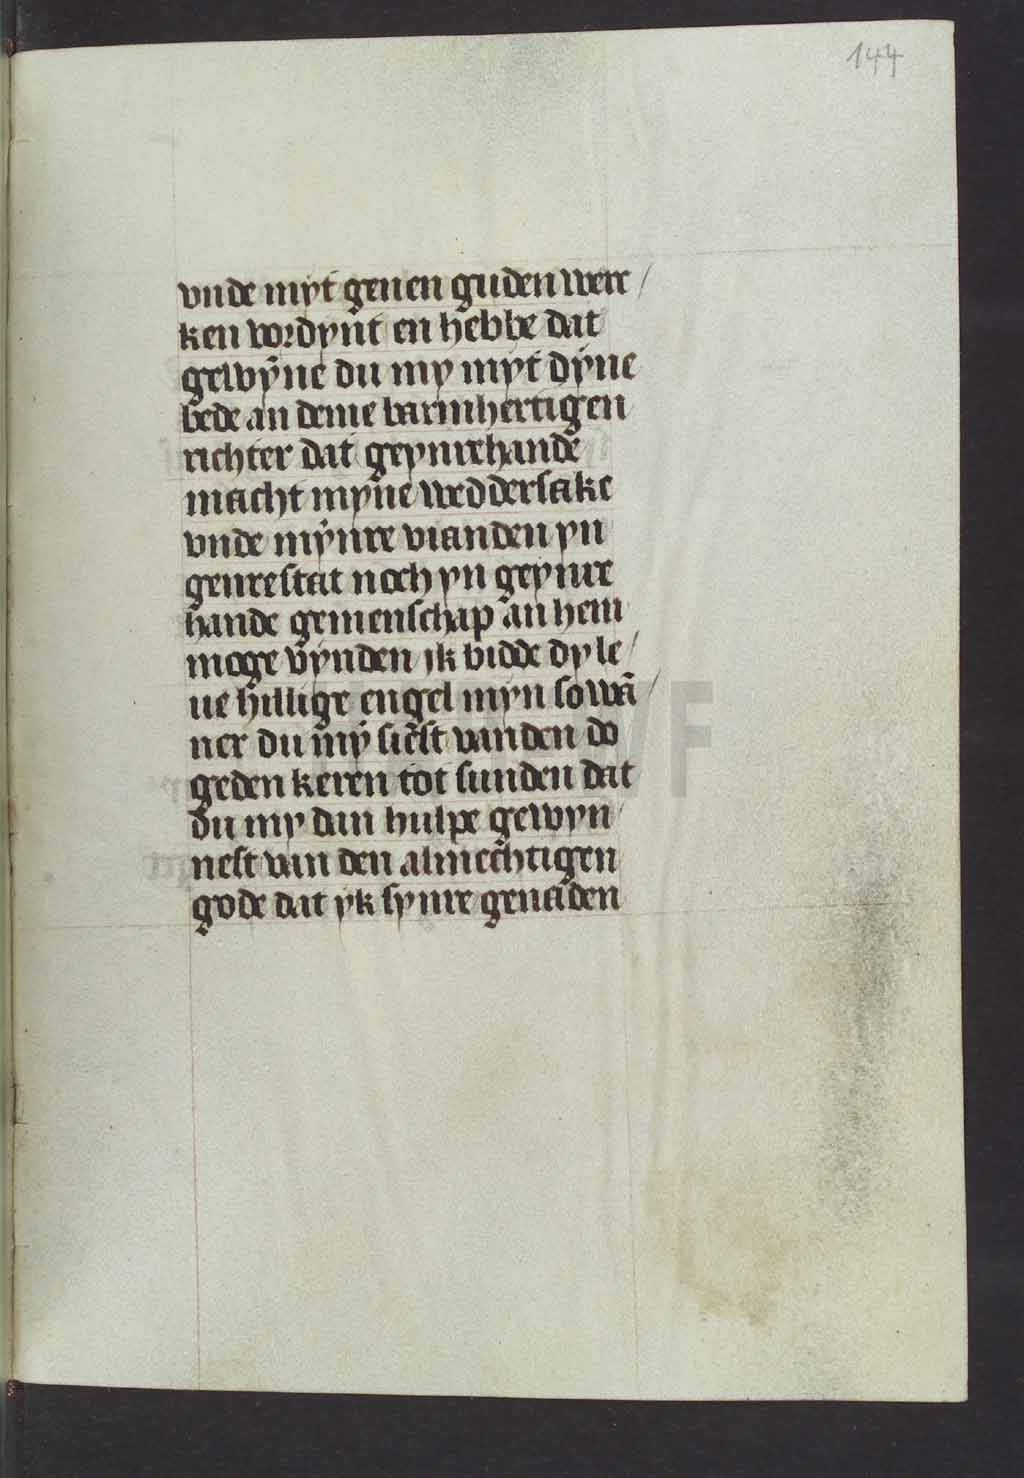 144
vnde myt genen guden werc/
ken vordynt en hebbe dat
gewÿne du my myt dÿne
bede an deme barmhertigen
richter dat geynrehande
macht myne weddersake
vnde mÿnre vianden yn
genrestat noch yn geynre
hande gemenschap an hem
moge vÿnden ik bidde dy le/
ue hillige engel myn so wā/
ner du mÿ siest vanden do
geden keren tot sunden dat
du my dan hulpe gewyn
nest van den almechtigen
gode dat yk synre genaden